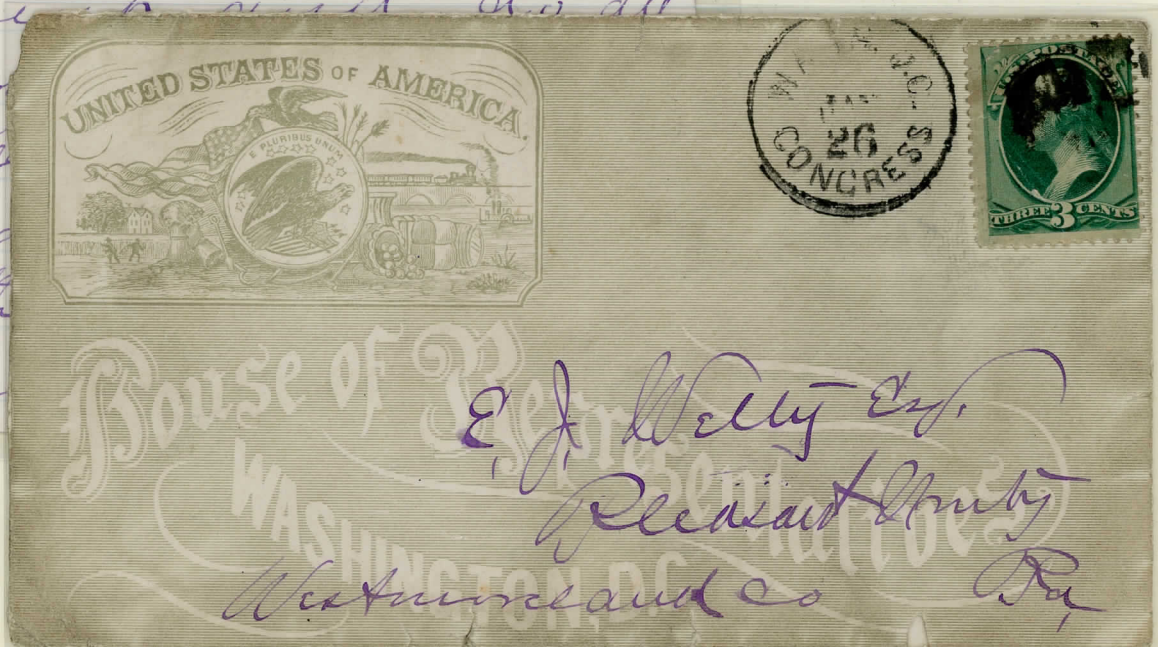 UNITED STATES OF AMERICA.
E PLURIBUS UNUM
CONGRESS
26
U.S. POSTAGE
THREE 3 CENTS
House of Representatives
WASHINGTON, D.C.
E. J. Welty Esq.
Pleasant Unity
Westmoreland Co Pa,